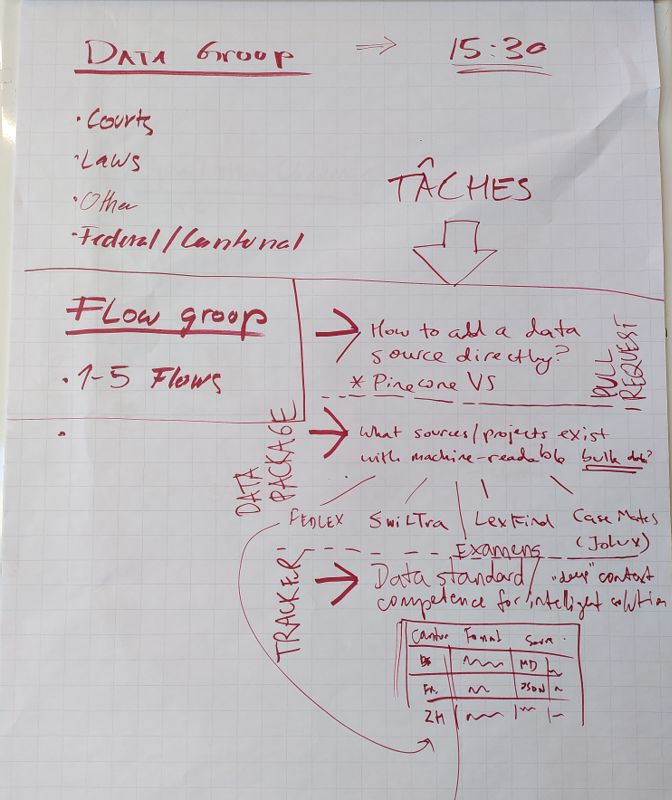 DATA Group → 15:30
• Courts
• Laws
• Other
• Federal/Cantonal
TÂCHES
Flow group
• 1-5 Flows
•
→ How to add a data
source directly?
* Pinecone VS
PULL REQUEST
→ What sources/projects exist
with machine-readable bulk data?
DATA PACKAGE
FEDLEX SwiLTra LexFind CaseMates
(Jolux)
Examens
TRACKER
→ Data standard / "deep" context
competence for intelligent solution
Canton Format
MD
FR JSON
ZH